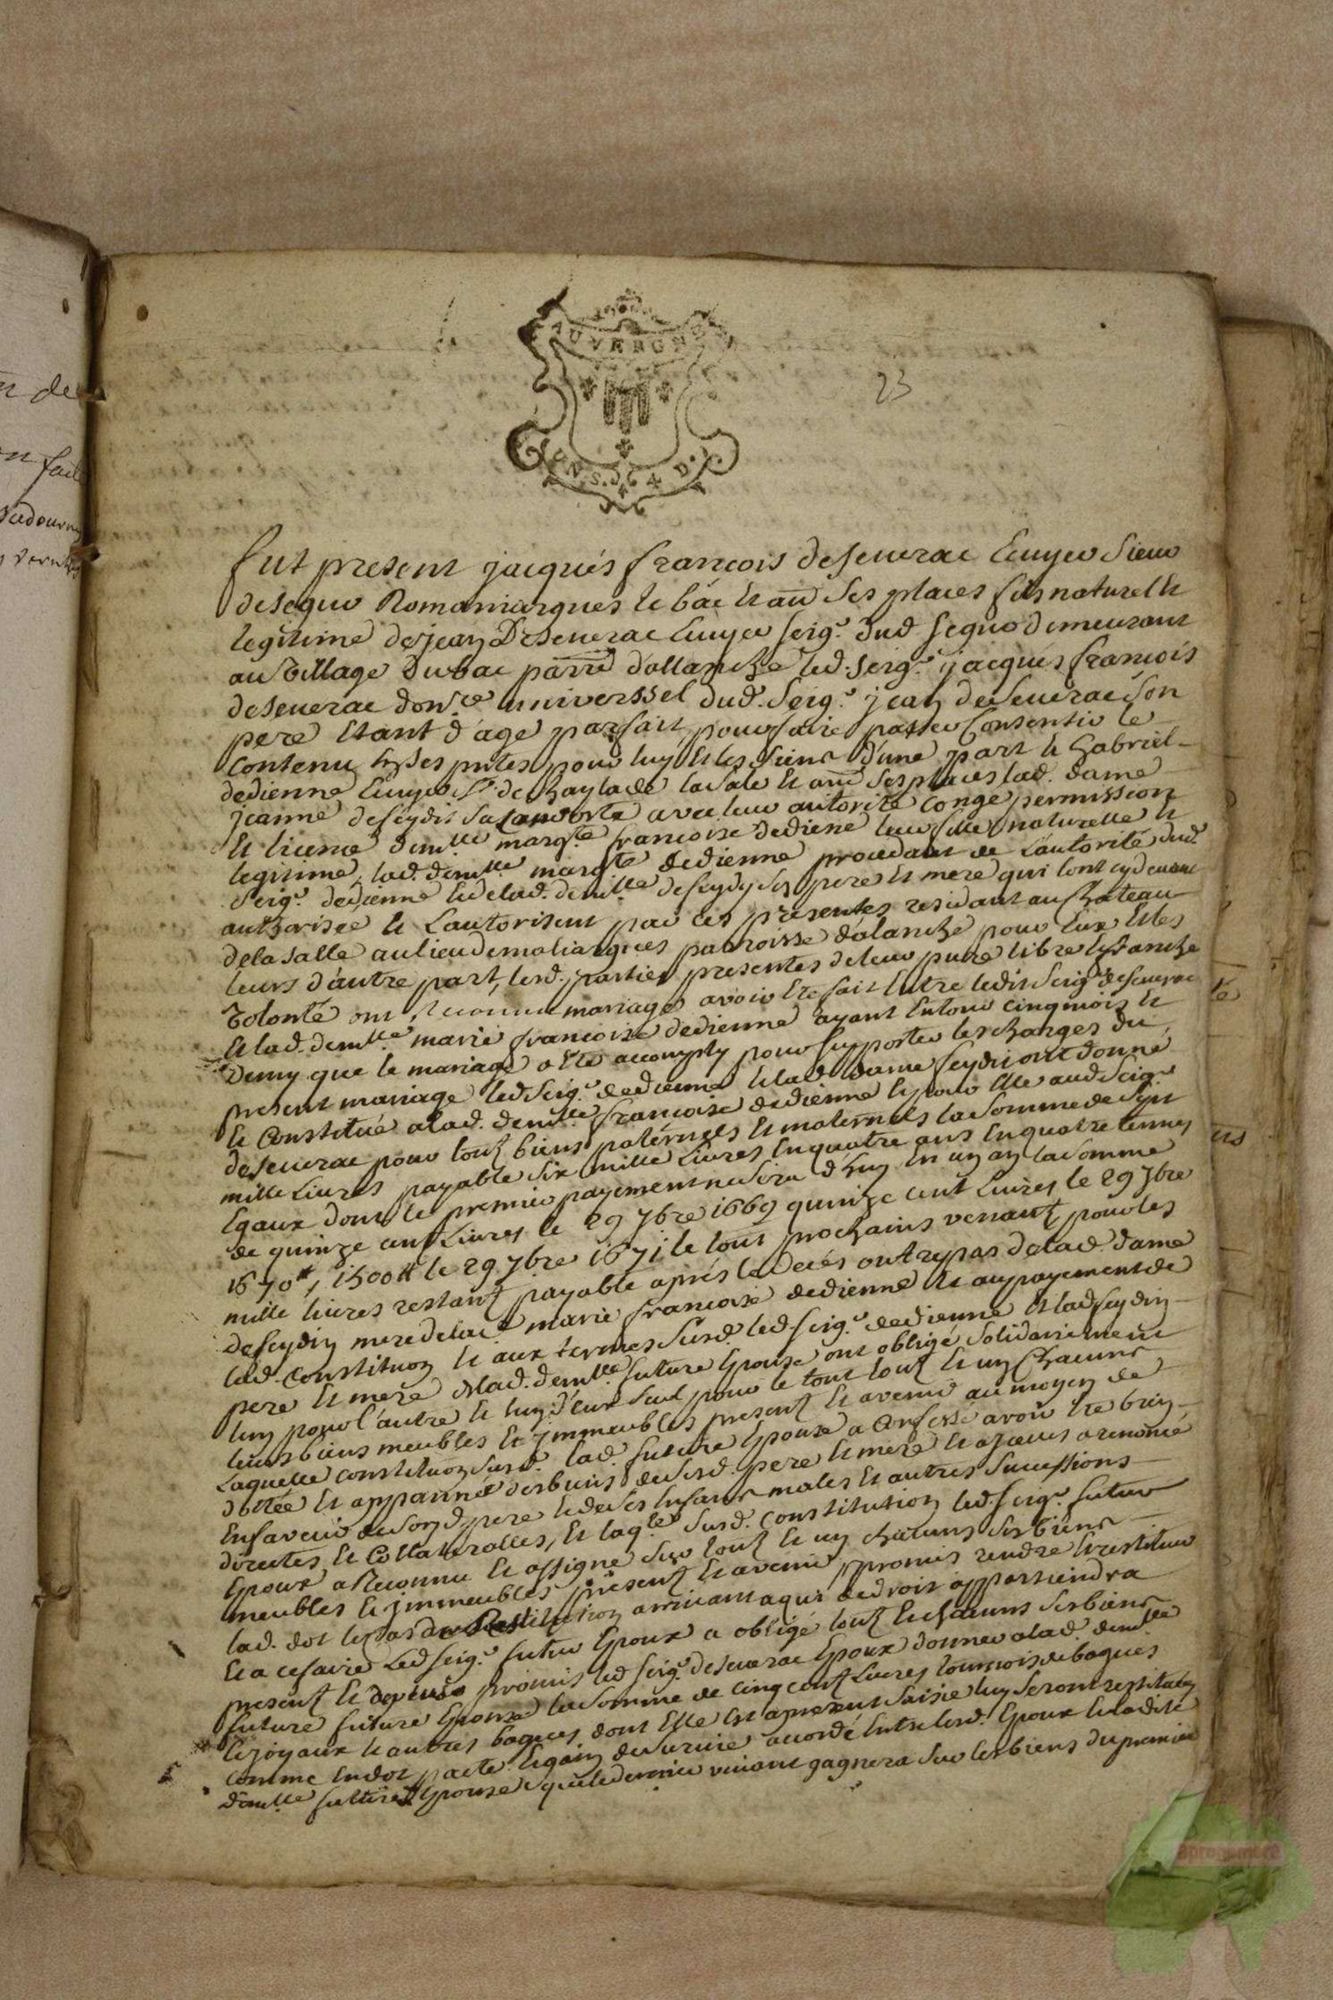 AUVERGNE
23
EN. S. 4 D.
fut present jacques françois deseuerac Ecuyer Sieur
desegur Romaniargues le bac et au͞ ses places fils naturel et
legitime de jean Deseuerac Ecuyer seigr. dud. segur demeurant
au Village Dubac parr͞e d'allanche led. seigr. jacques françois
deseuerac donre. universsel dud. seigr. jean deseuerac son
pere Etant d'age parfait, pour faire passer Consentir le
Contenu Es pntes pour luy et les siens d'une part et Gabriel
dedienne Ecuyer Sr. de Chaylade la sale et au͞ ses places lad. dame
jeanne deseydis sa avec leur autorité congé permission
et licence demlle margte francoise dediene leur fille naturelle et
legitime, lad. demlle margte dedienne procedant de L'autorité dud.
Seigr. dedienne et delad. demlle deseydy ses pere et mere qui l'ont cydeuant
authorisée et L'autorisent par ces presentes residant au Chateau
delasalle au lieu demaliargues parroisse d'alanche pour Eux et les
leurs d'autre part, lesd. parties presentes deleur pure libre et franche
Volonté ont mariage avoir Ete fait Entre ledit Seigr. deseuerac
Et lad. demlle marie francoise dedienne ayant Enuiron cinq mois et
demy que le mariage a Eté accomply pour supporter les charges du
present mariage led. seigr. dedienne et lad. dame seydis ont donné
Et Constitué a lad. demlle francoise dedienne et pour Elle aud. Seigr.
deseuerac pour tout biens paternels et maternels la somme de sept
mille Livres payable six mille Livres En quatre ans En quatre termes
Egaux dont le premier payement se fera d'huy En un an la somme
de quinze cens Livres le 29 7bre 1669 quinze cent Livres le 29 7bre
1670, 1500tt le 29. 7bre 1671 le tout prochains venant, pour les
mille livres restant payable aprés le decés ou trepas delad. dame
deseydis mere delad. marie francoise dedienne et au payement de
lad. constitution et aux termes susd. led. seigr. dedienne et lad. seydis
pere et mere delad. demlle future Epouse ont obligé solidairement
lun pour l'autre et lun d'eux seul pour le tout tout et un chacuns
leurs biens meubles et jmmeubles present et avenir au moyen de
Laquelle constitution susd. lad. future Epouse a Confessé avoir Ete bien
dotée et appannée des biens de sesd. pere et mere et a jceux a renoncé
En faveur de sond. pere et de ses Enfans males Et autres successions
directes et Collateralles, Et laqle susd. constitution led. seigr. futur
Epoux a Reconnu et assigné sur tout et un chacuns ses biens
meubles et jmmeubles present et avenir promis rendre et restituer
lad. dot le cas de Restitution arrivant a qui de droit appartiendra
Et a ce faire Led. seigr. futur Epoux a obligé tout et chacuns ses biens
present et avenir promis led. seigr. deseuerac Epoux donner a lad. demlle
future future Epouse la somme de cinq cent Livres tournois de bagues
et joyaux et autres bagues dont Elle Est apresent saisie luy seront restituées
comme En dot pacte et gain de survie accordé Entre lesd. Epoux et ladite
demlle future Epouse que le dernier vivant gagnera sur les biens du premier